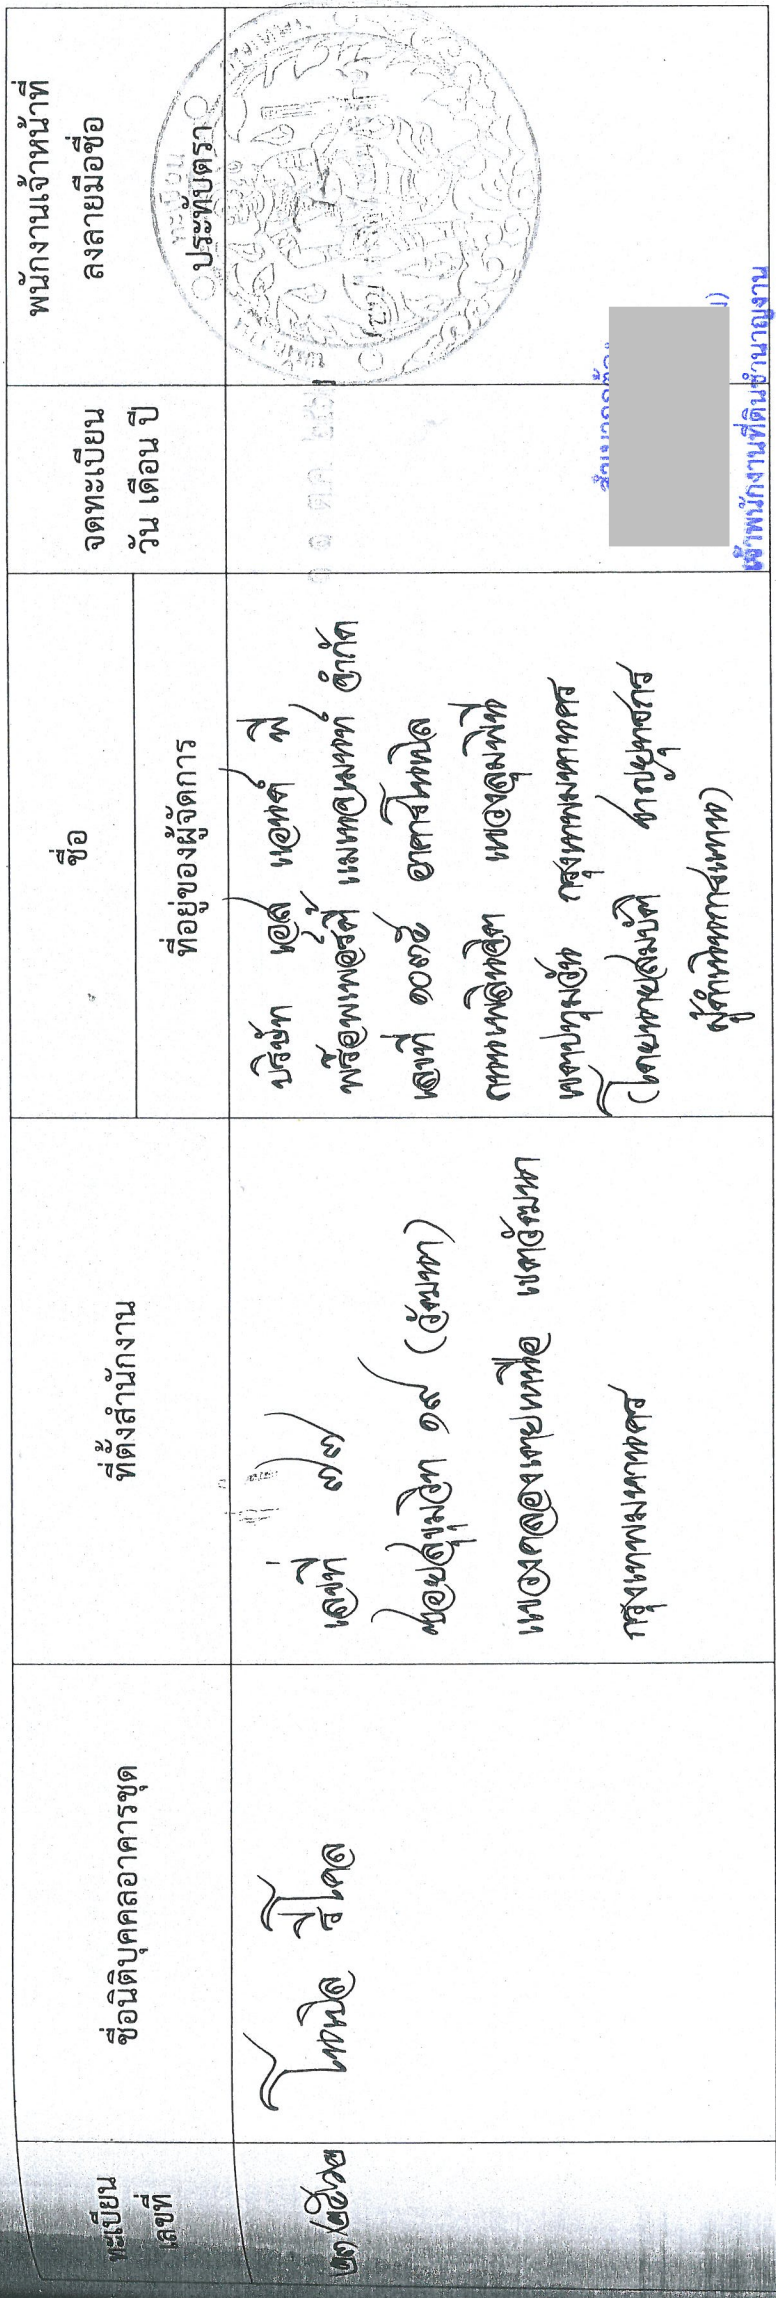 ทะเบียน
เลขที่
ชื่อนิติบุคคลอาคารชุด
ที่ตั้งสำนักงาน
ชื่อ
ที่อยู่ของผู้จัดการ
จดทะเบียน
วัน เดือน ปี
พนักงานเจ้าหน้าที่
ลงลายมือชื่อ
ประทับตรา
โนเบิล รีโคล
เลขที่ ๗๗
ซอยสุขุมวิท ๑๙ (วัฒนา)
แขวงคลองเตยเหนือ เขตวัฒนา
กรุงเทพมหานคร
บริษัท เอส แอนด์ พี
พร็อพเพอร์ตี้ แมเนจเมนท์ จำกัด
เลขที่ ๑๐๓๕ อาคารโนเบิล
ถนนเพลินจิต แขวงลุมพินี
เขตปทุมวัน กรุงเทพมหานคร
(โดยนายสมบัติ
ผู้ดำเนินการแทน)
ต.ค.
เจ้าพนักงานที่ดินชำนาญงาน